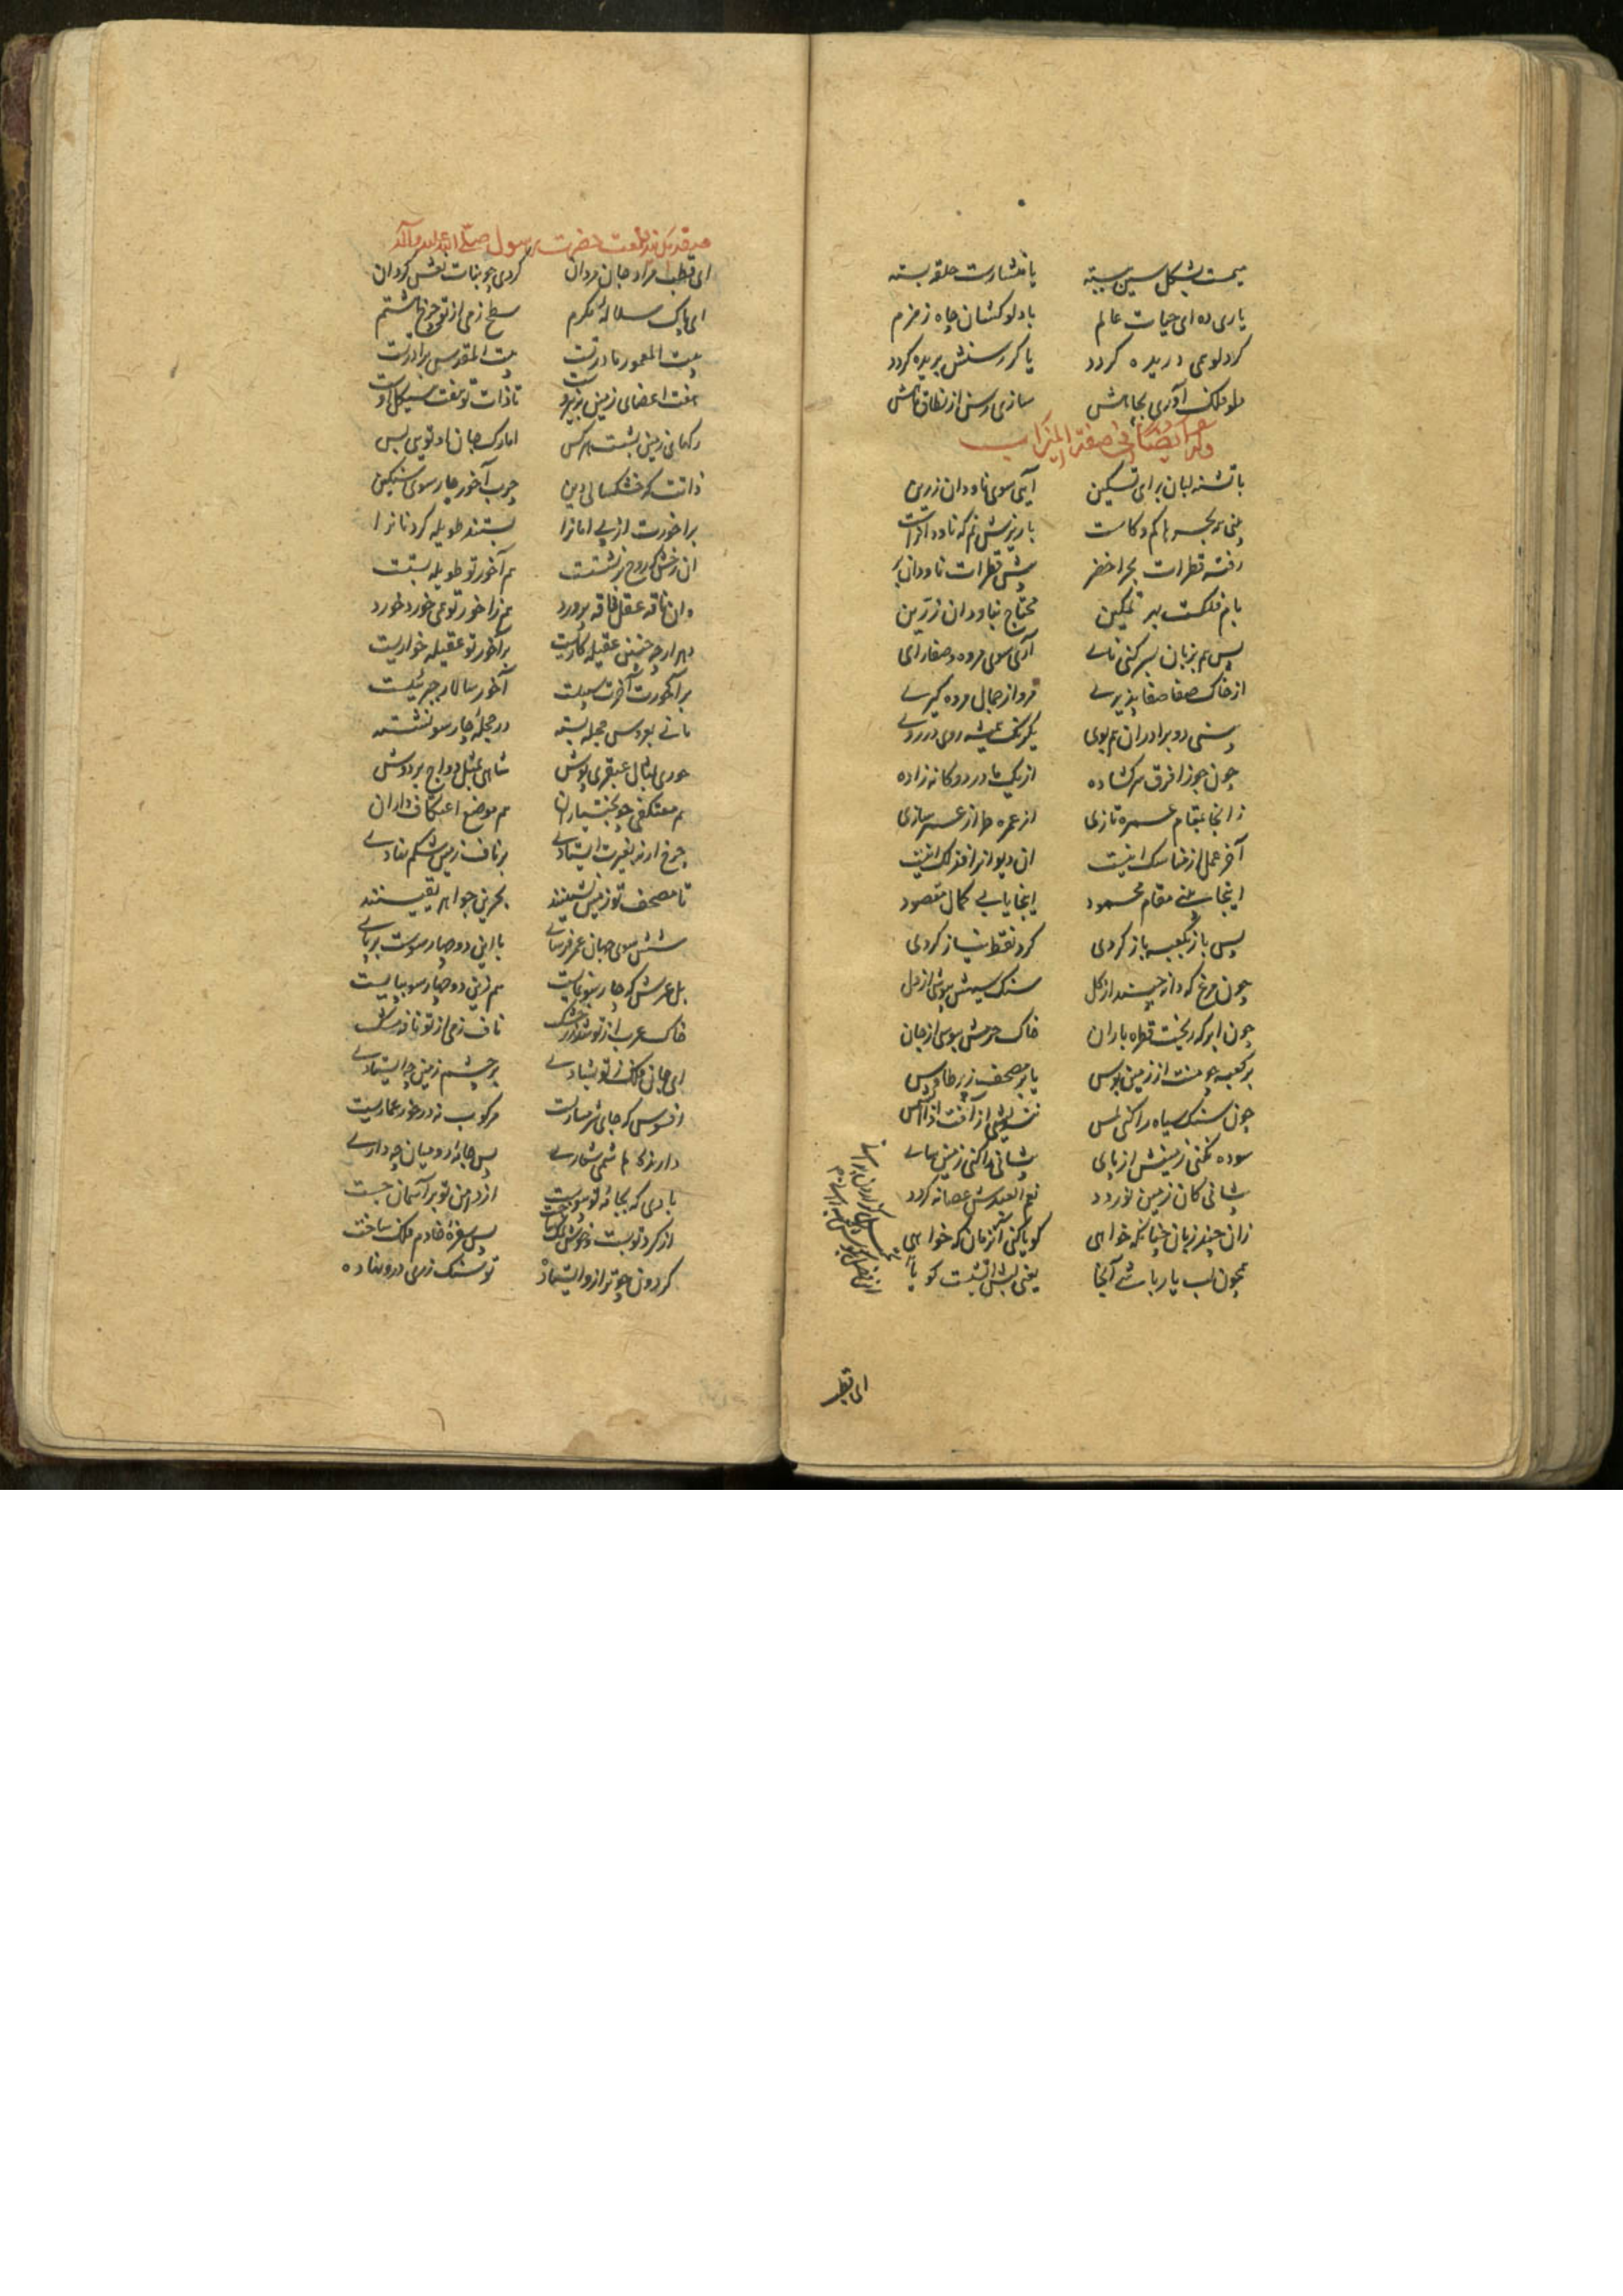 میمت بشکل سین بسته یا منشارت حلقه بسته
یاری ده ای حیات عالم با دلو کشان چاه زمزم
کر دلو می دریده کردد یا کر رسنش بریده کردد
دلو فلک آوری بچاهش سازی رسن از نطاق ماهش
وله ایضا فی صفة المیزاب
با تشنه لبان برای تسکین آیی سوی ناودان زرین
بینی که بحر با کم و کاست با ریزش نم که ناودانراست
رفته قطرات بحر اخضر پیش قطرات ناودان بر
بام فلکست بهر تمکین محتاج بناودان زرین
پس هم بزبان سر کنی نای آری سوی مروه و صفا رای
از خاک صفا صفا پذیری مرو از جمال مروه کیری
بینی دو برادران هم بوی یکرنک همیشه روی در روی
چون جوزا فرق سر کشاده از یک مادر دو کانه زاده
زانجا بمقام عمره تازی از عمره طراز عمر سازی
آخر عمل از مناسک اینست ان دیوانرا فذلک اینست
اینجا بینی مقام محمود اینجا یابی کمال مقصود
پس باز بکعبه باز کردی کرد نقط نیاز کردی
چون مرغ که دانه چیند از کل سنک سیهش ببوسی از دل
چون ابر که ریخت قطره باران خاک حرمش ببوسی از جان
بر کعبه چو منت از زمین بوس یا بر مصحف زیر طاوس
چون سنک سیاه را کنی لمس
سوده نکنی زمینش از پای پیشانی را کنی زمین سای
پیشانی کان زمین نوردد نعم العبدش عصابه کردد
زان چند زبان چنانکه خواهی کویا کنی آنزمان که خواهی
همچون لب یار باشی آنجا یعنی لبش آتشست کویا
ای قطب
ای قطب مراد جان مردان کردی چو بنات نعش کردان
ای پاک سلاله مکرم سطح زمی از تو چرخ هشتم
بیت المعمور مادر تست بیت المقدس برادرت
هفت اعضای زمین بنیروست تا ذات تو هفت هیکل اوست
رکهای زمین بشست هر کس اما رک جان او تویی بس
ذاتت که خشکسالی دین چرب آخور چار سوی سنکین
بر آخورت از پی امانرا بستند طویله کردنانرا
ان رخش که روح بر نشستت هم آخور تو طویله بستت
وان ناقه عقل فاقه پرورد هم زاخور تو می خورد خورد
بهر ار چه چنین عقیله کاریست بر آخور تو عقیله خواریست
بر آخورت آخرت سبیلست آخور سالار جبرئیلست
مانی بعروس حجله بسته در حجله چار سو نشسته
حوری بمثال عبقری پوش شاهی بمثل دواج بر دوش
هم معتکفی چو بختیاران هم موضع اعتکاف داران
چرخ ار نه بغیرت ایستادی بر ناف زمین شکم نهادی
تا مصحف تو زمین نشینند بحرین جواهر یقینند
شش سوی جهان عمر فرسای با این دو چهار سوست بر پای
بل عرش که چار سو نمایست هم زین دو چهار سو بپایست
خاک عرب از تو شد زر خشک ناف زمی از تو نافه مشک
ای جان فلک ز تو بشادی بر چشم زمین چه ایستادی
افسوس که جای شرمساریست مرکوب نه در خور عماریست
داری که هاشمی شعاری پس جامه رومیان چه داری
بادی که بجامه تو پیوست از دامن تو بر آسمان جست
از کرد تو بست پس سفره خادم فلک ساخت
کردون چو ترازو ایستاده تو سنک زری درو نهاده